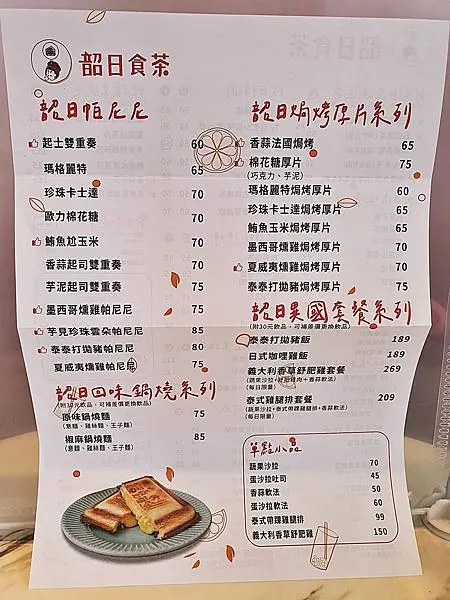 韶日食茶
韶日帕尼尼
起士雙重奏 60
瑪格麗特 65
珍珠卡士達 70
歐力棉花糖 70
鮪魚尬玉米 70
香蒜起司雙重奏 70
芋泥起司雙重奏 70
墨西哥燻雞帕尼尼 75
芋見珍珠雲朵帕尼尼 85
泰泰打拋豬帕尼尼 80
夏威夷燻雞帕尼尼 75
韶日回味鍋燒系列
(附30元飲品,可補差價更換飲品)
原味鍋燒麵 75
(意麵、雞絲麵、王子麵)
椒麻鍋燒麵 85
(意麵、雞絲麵、王子麵)
韶日焗烤厚片系列
香蒜法國焗烤 65
棉花糖厚片 75
(巧克力、芋泥)
瑪格麗特焗烤厚片 60
珍珠卡士達焗烤厚片 65
鮪魚玉米焗烤厚片 65
墨西哥燻雞焗烤厚片 70
夏威夷燻雞焗烤厚片 70
泰泰打拋豬焗烤厚片 75
韶日異國套餐系列
(附30元飲品,可補差價更換飲品)
泰泰打拋豬飯 189
日式咖哩雞飯 189
義大利香草舒肥雞套餐 269
(蔬果沙拉+舒肥雞肉+香蒜軟法)
(每日限量)
泰式雞腿排套餐 209
(蔬果沙拉+泰式帶踝雞腿排+香蒜軟法)
(每日限量)
單點小品
蔬果沙拉 70
蛋沙拉吐司 45
香蒜軟法 50
蛋沙拉軟法 60
泰式帶踝雞腿排 99
義大利香草舒肥雞 150